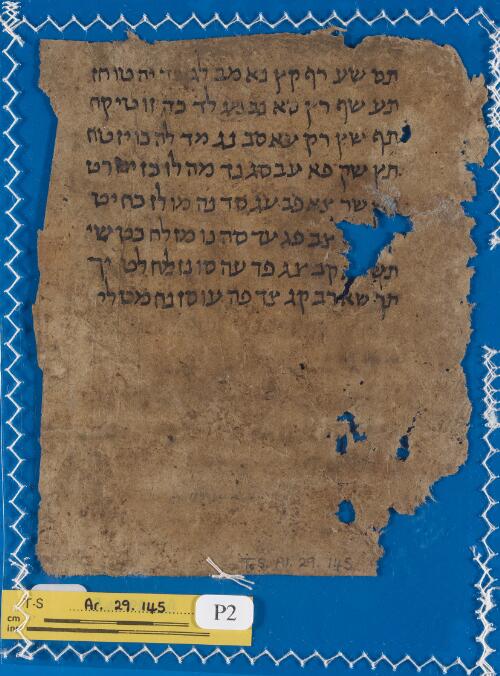 תס שע רף קץ נא מב לג כד יה טו חז
תע שף רץ סא נב מג לד כה יו טז קח
תף שץ רק עא סב נג מד לה כו יז טח
תץ שק פא עב סג נד מה לו כז יח רט
שר צא פב עג סד נה מו לז כח יט
צב פג עד סה נו מז לח כט שי
תש קב צג פד עה סו נז מח לט יך
תך שא רב קג צד פה עו סז נח מט לי
T.S. Ar. 29. 145
T-S Ar. 29. 145
P2
cm